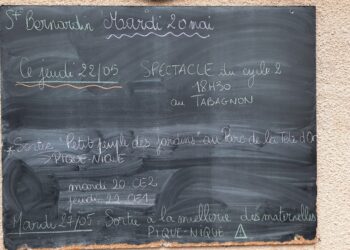 St Bernardin Mardi 20 mai
Ce jeudi 22/05 SPECTACLE du cycle 2
18H30
au TABAGNON
Sortie "Petit peuple des jardins" au Parc de la Tête d'Or
PIQUE-NIQUE
mardi 20 CE2
jeudi 22 CE1
Mardi 27/05 Sortie à la miellerie des maternelles
PIQUE-NIQUE